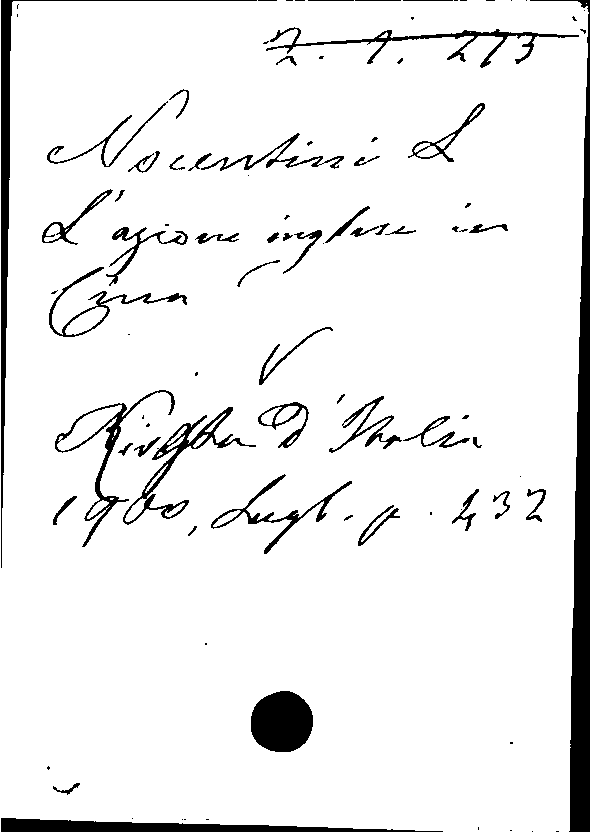 2. 1. 273
Nocentini L
L'azione inglese in
Cina
Rivista d'Italia
1900, Lugl. p. 432